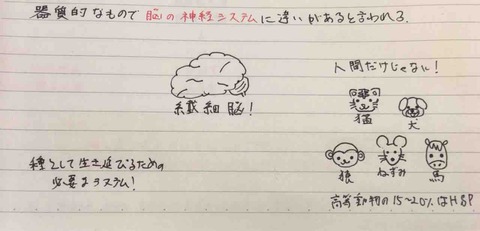 器質的なもので脳の神経システムに違いがあると言われる.
人間だけじゃない!
繊細脳!
猫
犬
種として生き延びるための
必要なシステム!
猿
ねずみ
馬
高等動物の15~20%はHSP